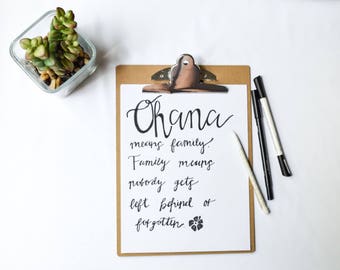 Ohana
means family
Family means
nobody gets
left behind or
forgotten